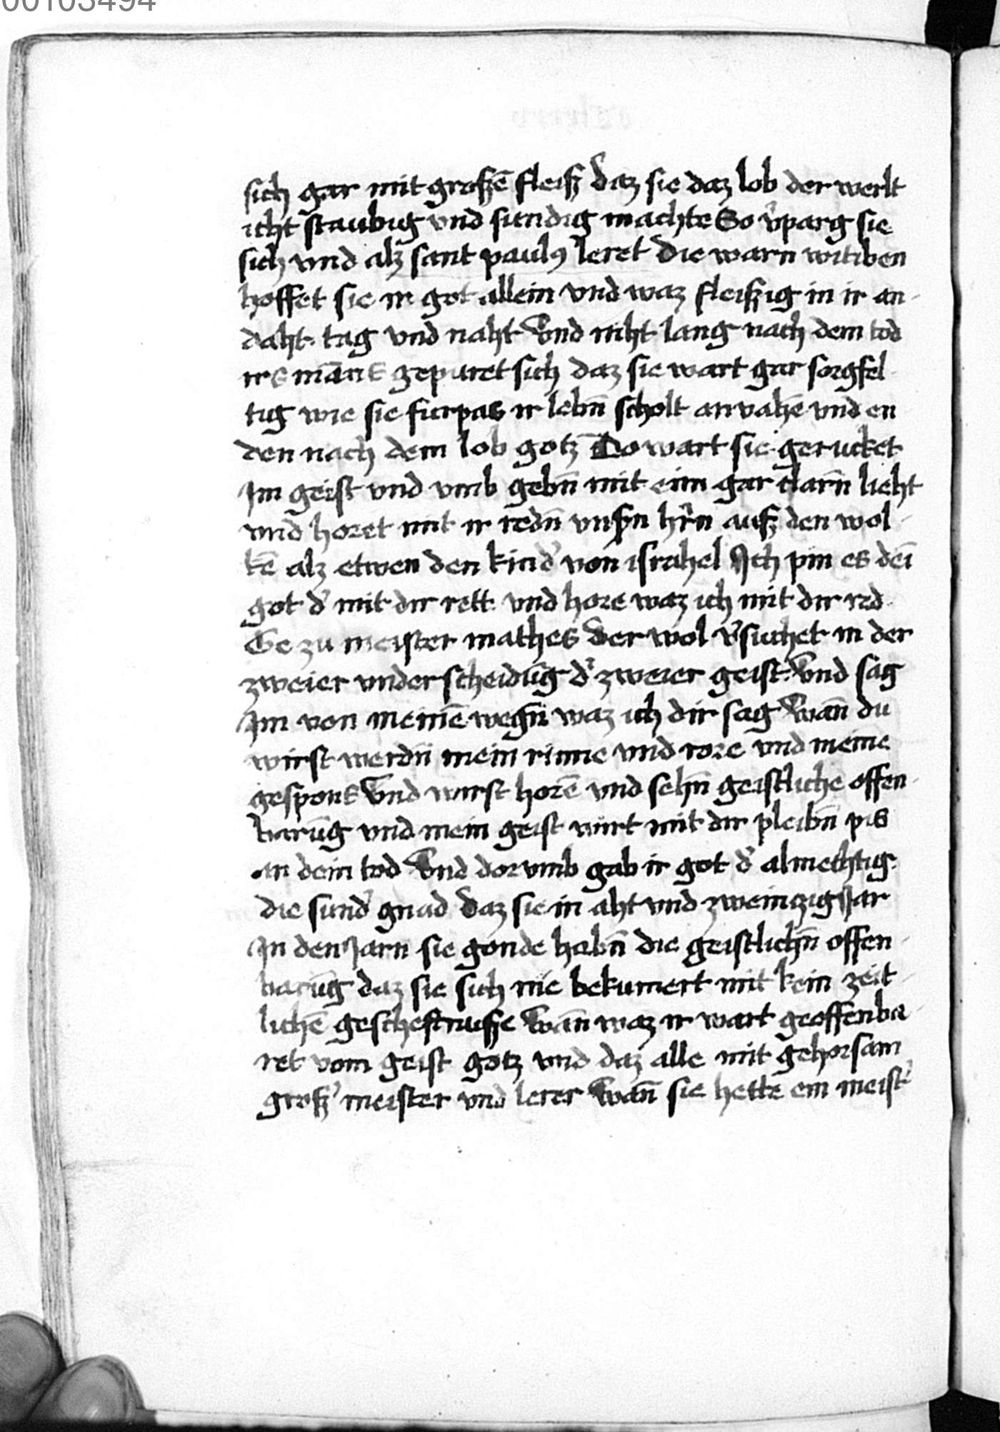 00103494
sich gar mit großē fleiß daz sie daz lob der werlt
icht staubig vnd sundig machte So v̓parg sie
sich vnd alz sant paulꝰ leret Die warn witiben
hoffet sie in got allein vnd waz fleißig in ir an-
daht tag vnd naht Vnd niht lang nach dem tod
irs mans gepuret sich daz sie wart gar sorgfel-
tig wie sie furpas ir lebn̄ scholt anvahē vnd en
den nach dem lob gotz Do wart sie gerucket
Im geist vnd vmb gebn̄ mit eim gar clarn̄ lieht
vnd horet mit ir redn̄ vnsn̄ hr̄n auß den wol-
kē alz etwen den kind̓ von israhel Ich pin es dein
got d̓ mit dir rett vnd hore waz ich mit dir red
Ge zu meister mathes der wol v̓suchet in der
zweier vnderscheidūg d̓ zweier geist Vnd sag
Im von meinē wegn̄ waz ich dir sag Wān du
wirst werdn̄ mein rinne vnd rore vnd meine
gespons Vnd wirst horē vnd sehn̄ geistliche offen-
barūg vnd mein geist wirt mit dir pleibn̄ pis
an dein tod Vnd dor vmb gab ir got d̓ almechtig
die sund̓ gnad daz sie in aht vnd zweinzig Jar
In den Jarn sie gonde habn̄ die geistlichn̄ offen-
barūg daz sie sich nie bekumert mit kein zeit-
lichē gescheftnuße Wān waz ir wart geoffenba-
ret vom geist gotz vnd daz alle mit gehorsam
groß̓ meister vnd lerer Wān sie hette ein meist̓